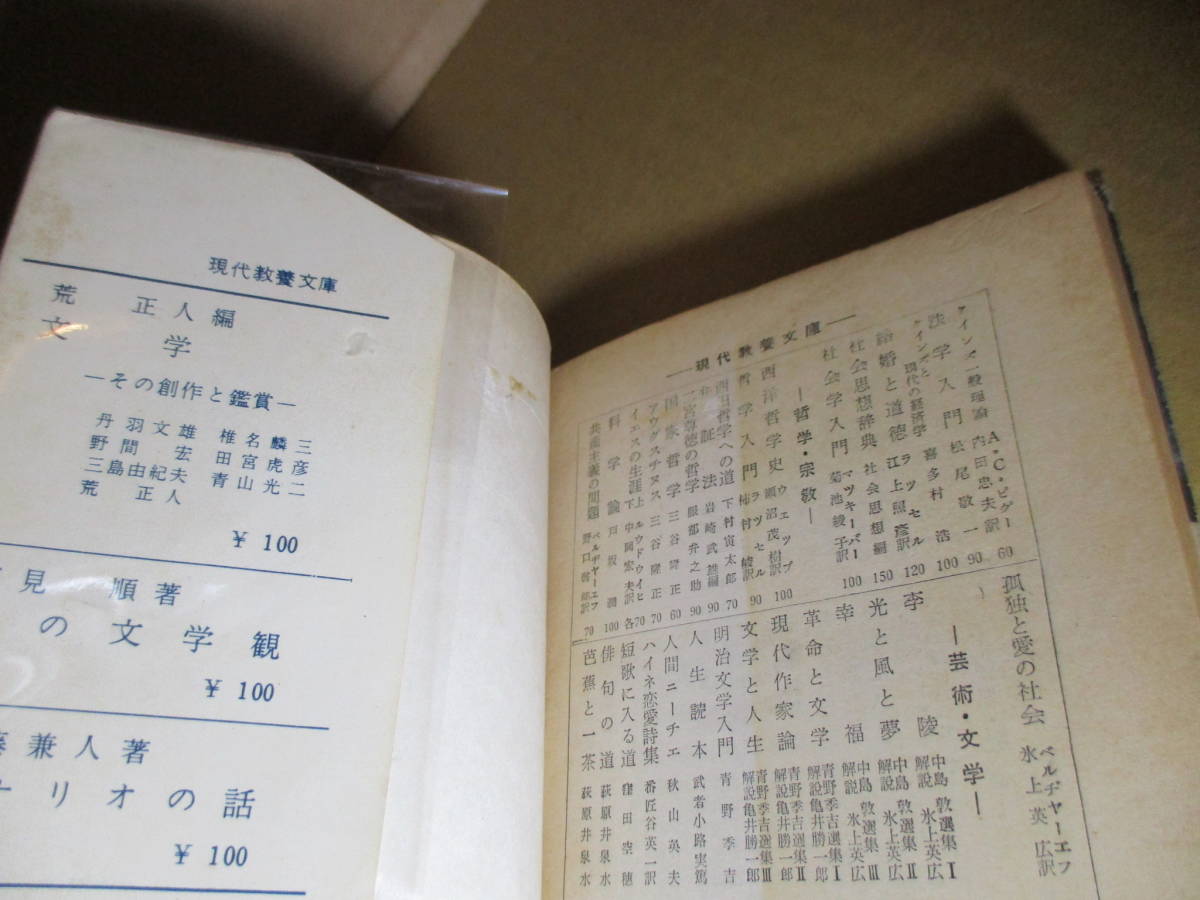 現代教養文庫
荒 正人編
文 学
―その創作と鑑賞―
丹羽文雄 椎名麟三
野間 宏 田宮虎彦
三島由紀夫 青山光二
荒 正人
¥ 100
見 順著
の文学観
¥ 100
兼人著
ナリオの話
¥ 100
―現代教養文庫―
ケインズ一般理論 A・C・ピグー 内田忠夫訳 60
法学入門 松尾敬一 90
ケインズと現代の経済学 喜多村浩 100
結婚と道徳 ラッセル 江上照彦訳 120
社会思想辞典 社会思想編 150
社会学入門 マッキーバー 菊池綾子訳 100
―哲学・宗教―
西洋哲学史 ウェッブ 瀬沼茂樹訳 100
哲学入門 ラッセル 柿村峻訳 90
西田哲学への道 下村寅太郎 70
弁証法 岩崎武雄編 90
二宮尊徳の哲学 服部弁之助 90
国家哲学 三谷隆正 60
アウグスチヌス 三谷隆正 70
イエスの生涯 上下 ルウドウイヒ 中岡宏夫訳 各70
科学論 戸坂潤 100
共産主義の問題 ベルヂヤーエフ 野口啓祐訳 70
孤独と愛の社会 ベルヂヤーエフ 氷上英広訳
―芸術・文学―
李陵 中島敦選集Ⅰ 解説 氷上英広
光と風と夢 中島敦選集Ⅱ 解説 氷上英広
幸福 中島敦選集Ⅲ 解説 氷上英広
革命と文学 青野季吉選集Ⅰ 解説亀井勝一郎
現代作家論 青野季吉選集Ⅱ 解説亀井勝一郎
文学と人生 青野季吉選集Ⅲ 解説亀井勝一郎
明治文学入門 青野季吉
人生読本 武者小路実篤
人間ニーチエ 秋山英夫
ハイネ恋愛詩集 番匠谷英一訳
短歌に入る道 窪田空穂
俳句の道 萩原井泉水
芭蕉と一茶 萩原井泉水